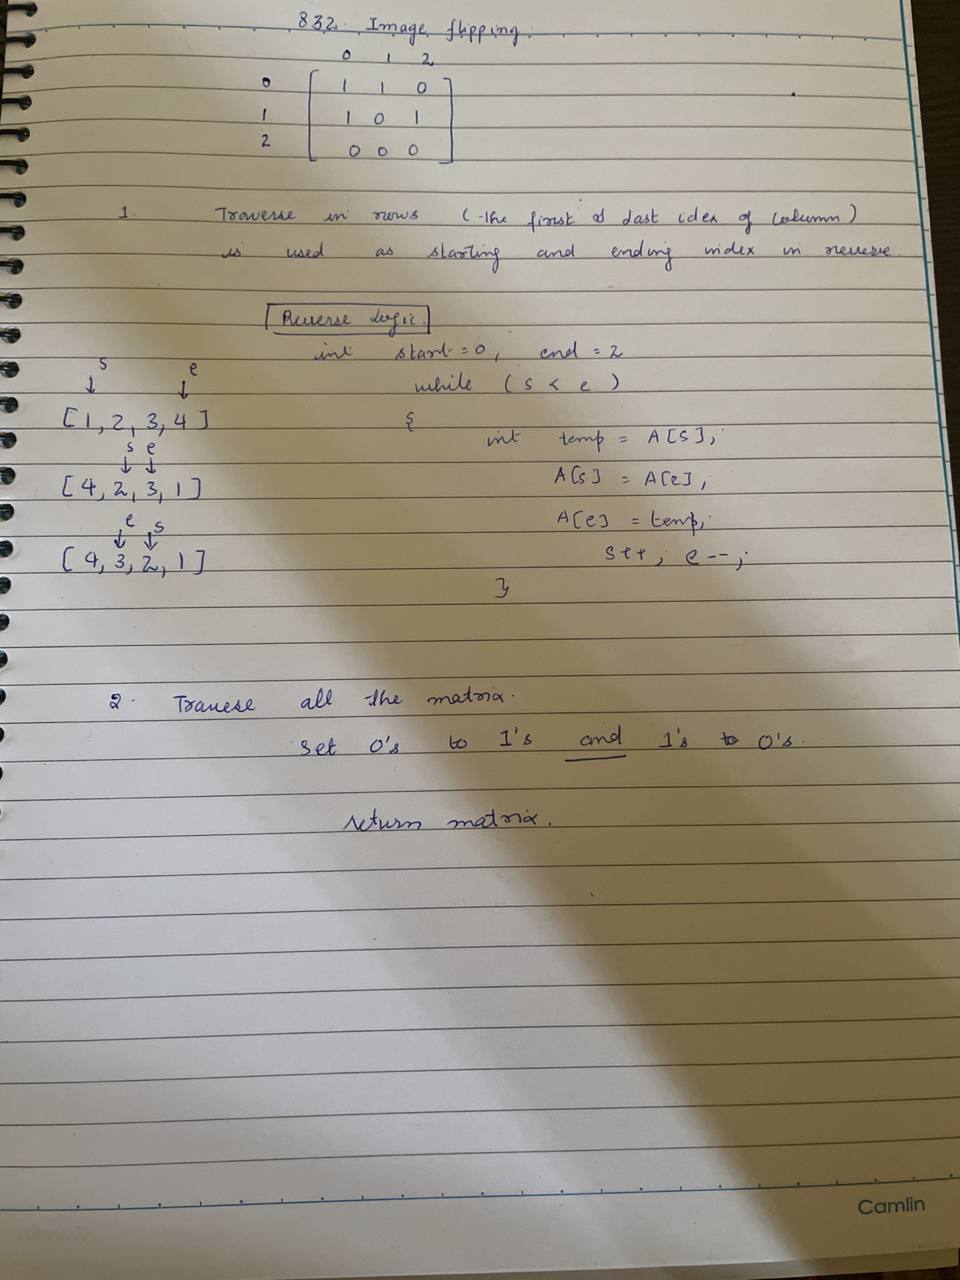 832. Image flipping.
0 1 2
0 1 1 0
1 1 0 1
2 0 0 0
1. Traverse in rows (the first & last idex of Column)
is used as starting and ending index in reverse.
Reverse Logic.
int start = 0, end = 2
s e
while (s < e)
[1, 2, 3, 4]
{
int temp = A[s];
s e
[4, 2, 3, 1]
A[s] = A[e];
A[e] = temp;
e s
[4, 3, 2, 1]
s++; e--;
}
2. Traverse all the matrix.
Set 0's to 1's and 1's to 0's.
return matrix.
Camlin